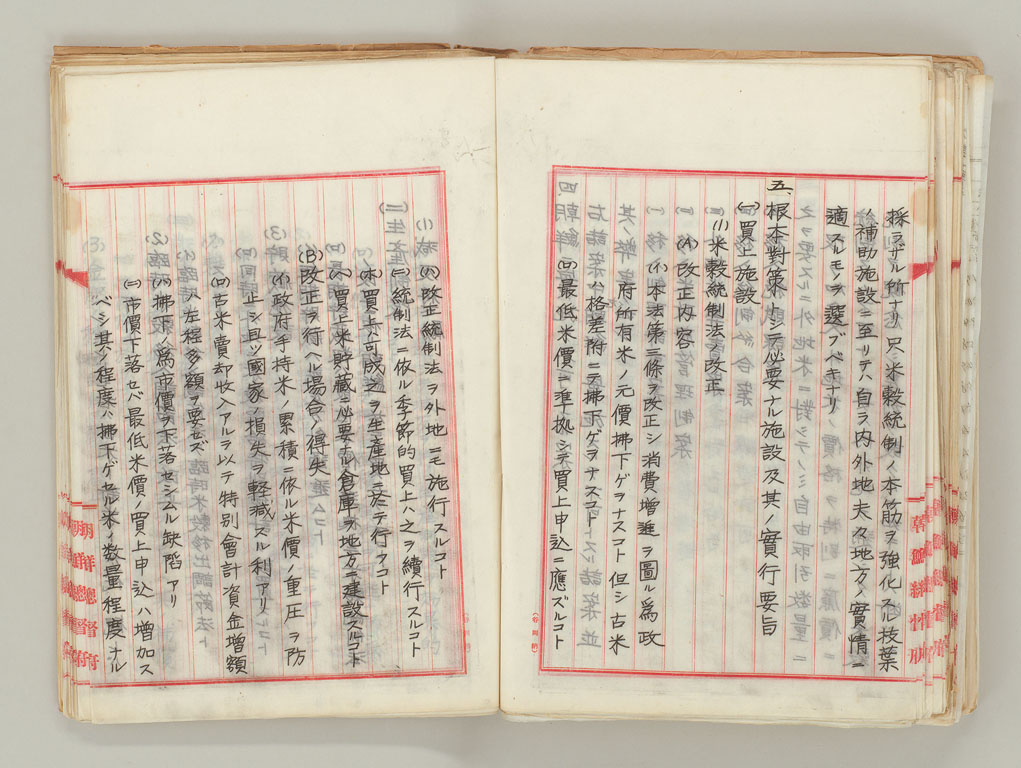 採ラザル所ナリ只米穀統制ノ本筋ヲ強化スル枝葉
ノ補助施設ニ至リテハ自ラ内外地夫々地方ノ實情ニ
適スルモノヲ選ブベキナリ
五、根本對策トシテ必要ナル施設及其ノ實行要旨
(一)買上施設
(1)米穀統制法改正
(A)改正内容
(イ)本法第三條ヲ改正シ消費增進ヲ圖ル爲政
府所有米ノ元價拂下ゲヲナスコト但シ古米
ハ格差附ニテ拂下ゲヲナスコト
(ロ)最低米價ニ準拠シテ買上申込ニ應ズルコト
(ハ)改正統制法ヲ外地ニモ施行スルコト
(ニ)統制法ニ依ル季節的買上ハ之ヲ續行スルコト
(ホ)買上ハ可成之ヲ生產地ニ於テ行フコト
(ヘ)買上米貯藏ニ必要ナル倉庫ヲ地方ニ建設スルコト
(B)改正ヲ行ヘル場合ノ得失
(イ)政府手持米ノ累積ニ依ル米價ノ重圧ヲ防
止シ且ツ國家ノ損失ヲ軽減スル利アリ
(ロ)古米賣却收入アルヲ以テ特別會計資金增額
ハ左程多額ヲ要セズ
(ハ)拂下ノ爲市價ヲ下落セシムル缺陷アリ
(ニ)市價下落セバ最低米價ノ買上申込ハ增加ス
ベシ其ノ程度ハ拂下ゲセル米ノ数量程度ナル
朝鮮總督府